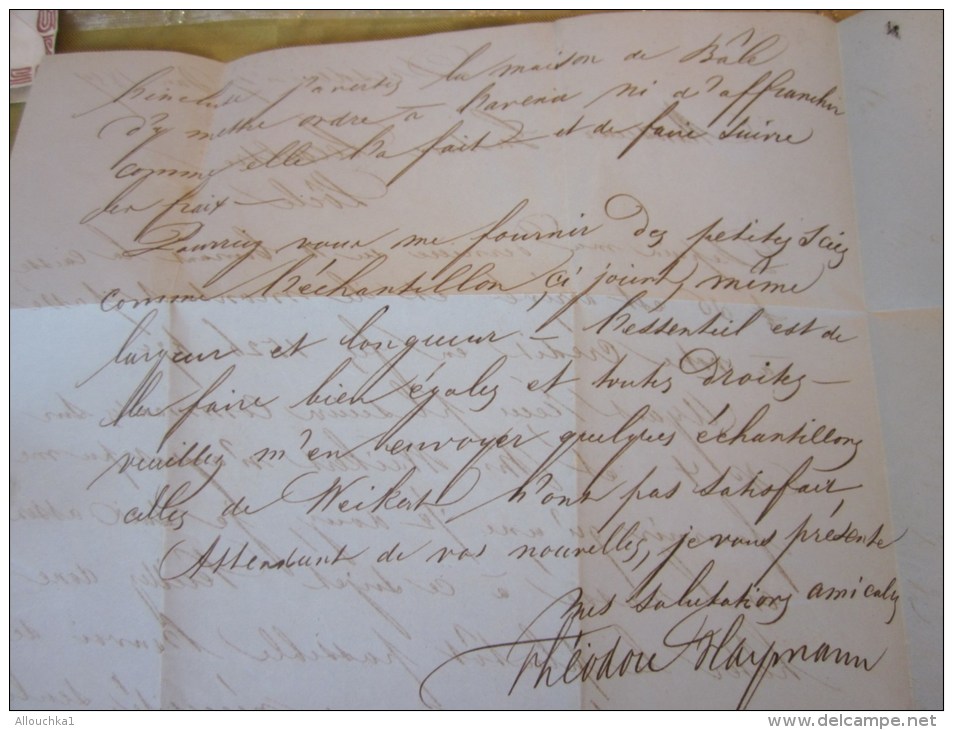 l'incluse j'avertis la maison de Bâle
d'y mettre ordre à l'avenir ni d'affranchir
comme elle l'a fait et de faire suivre
les fraix —
Pourriez vous me fournir des petites scies
comme l'échantillon ci joint, même
largeur et longueur — l'essentiel est de
les faire bien égales et toutes droites —
veuillez m'en envoyer quelques échantillons
celles de Weikert n'ont pas satisfait,
Attendant de vos nouvelles, je vous présente
mes salutations amicales
Théodore Haymann
Allouchka1
www.delcampe.net